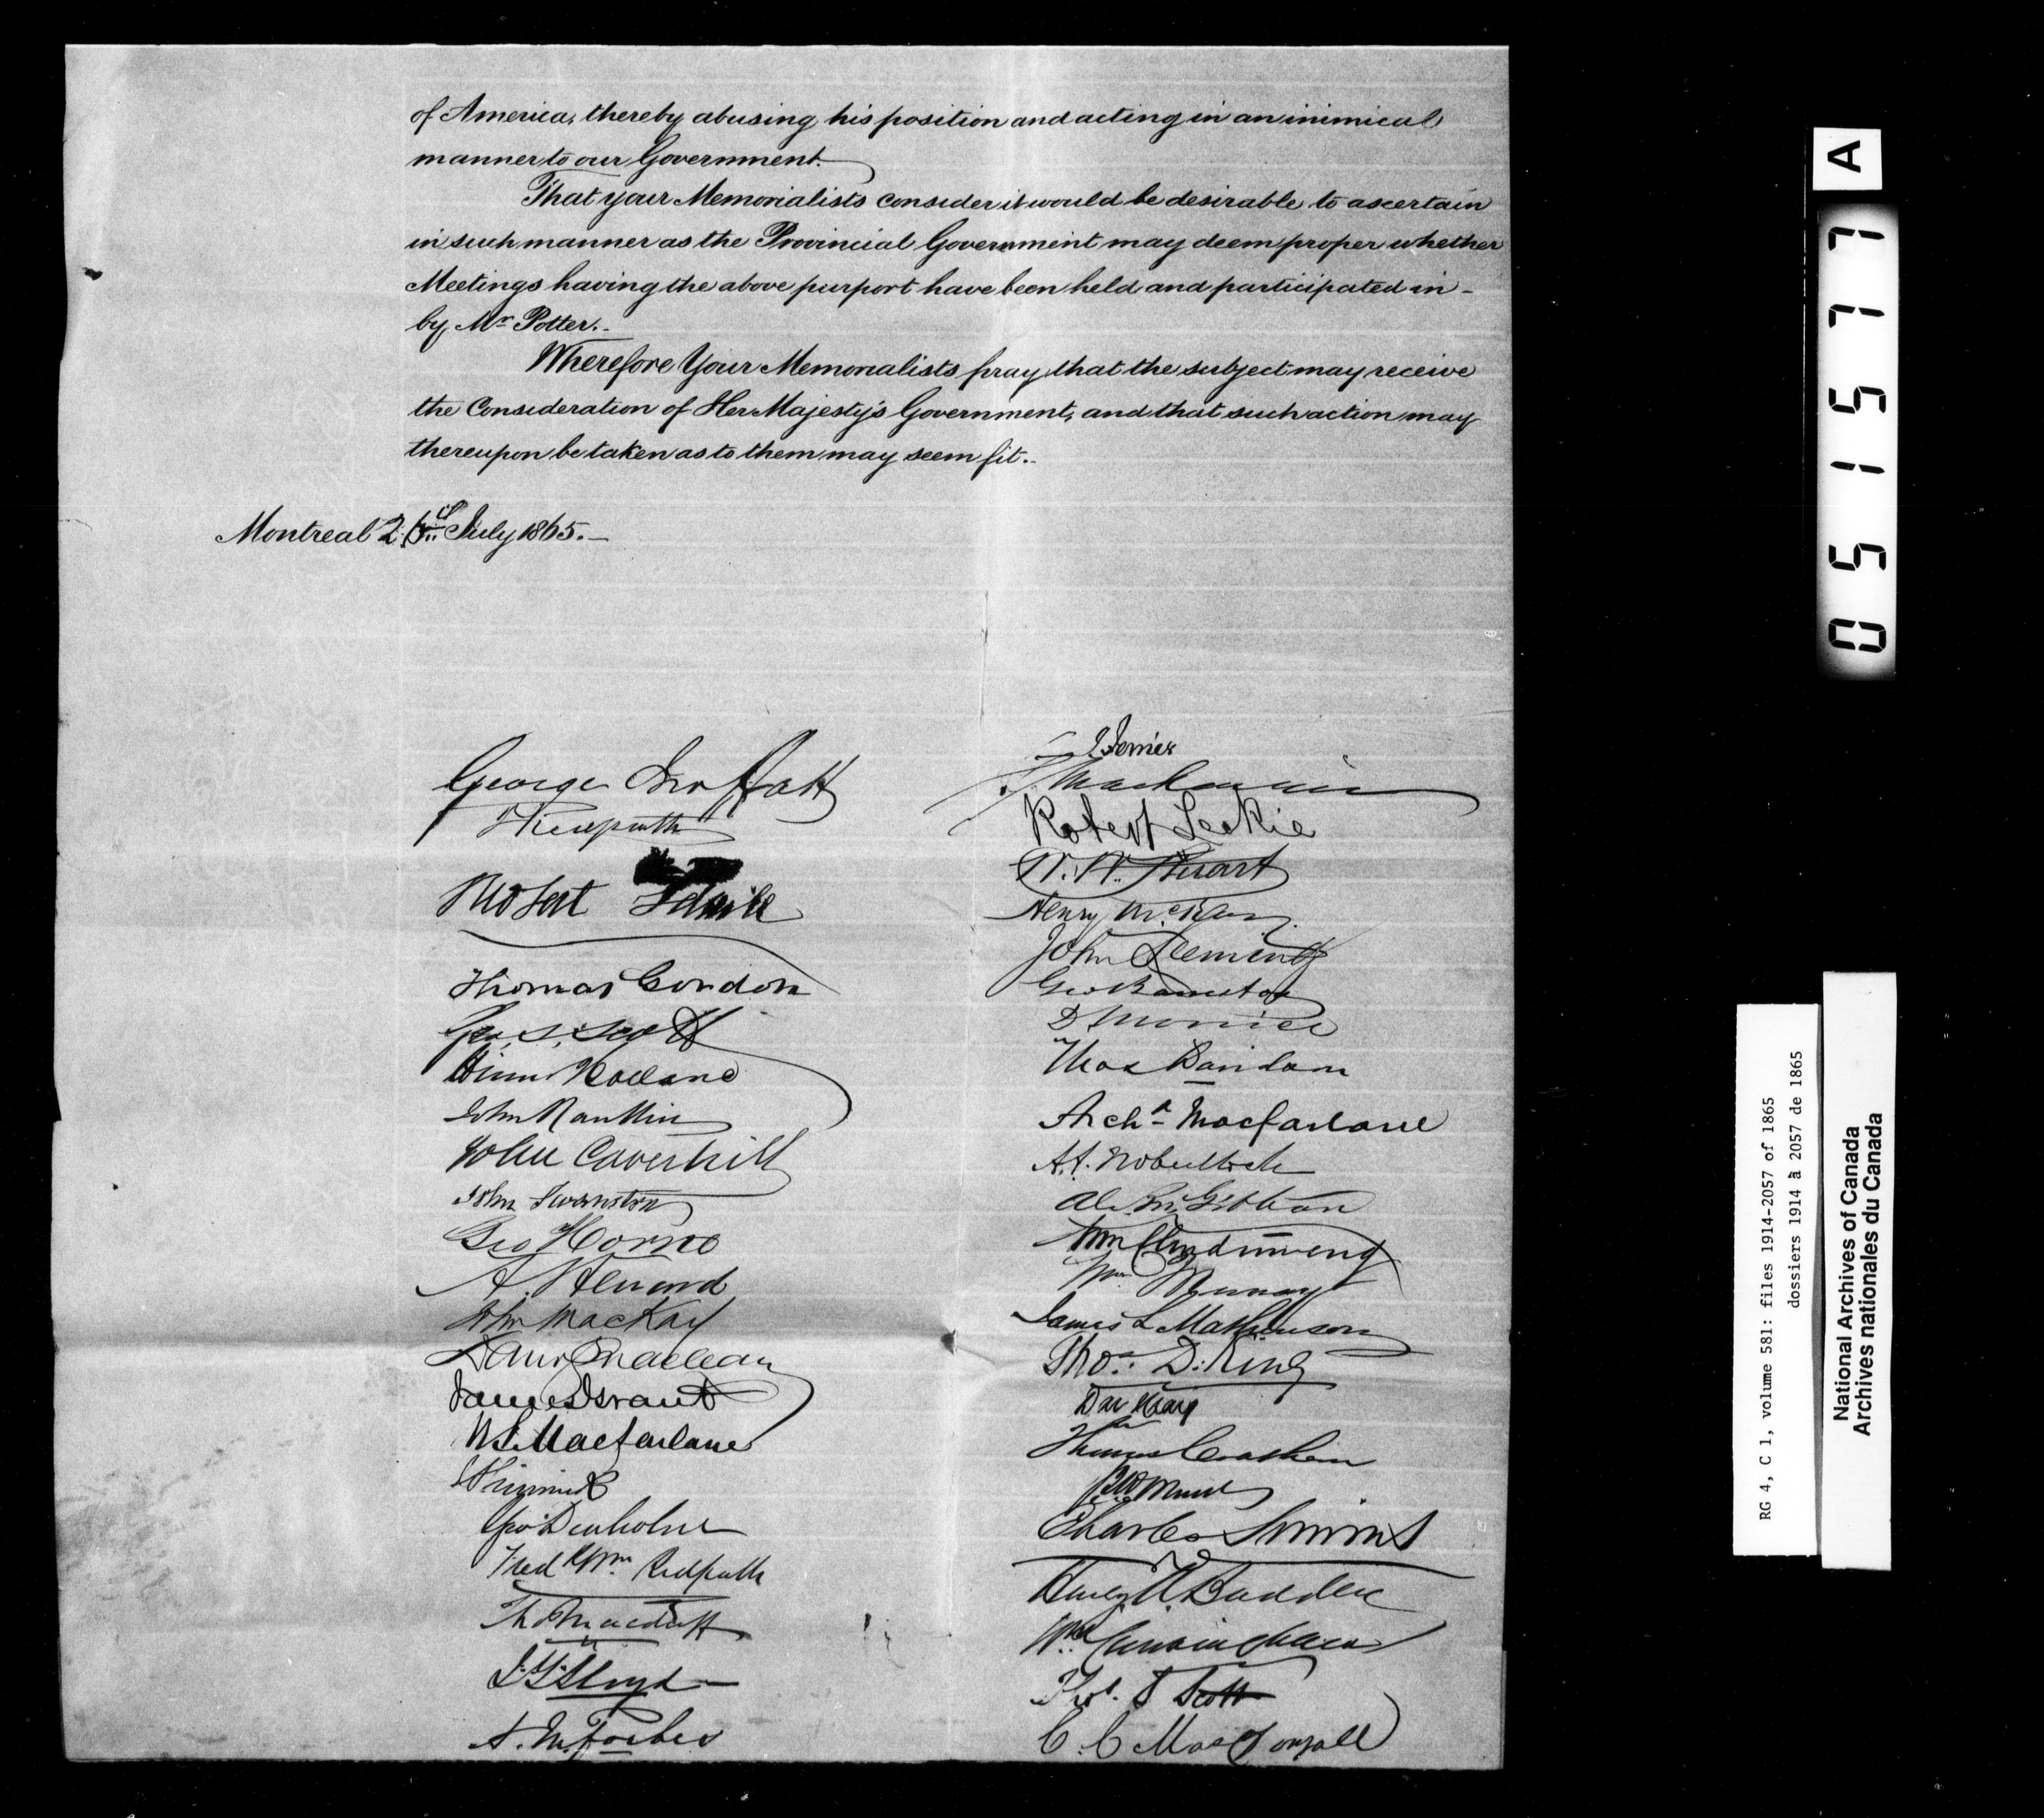 of America, thereby abusing his position and acting in an inimical
manner to our Government.
That your Memorialists consider it would be desirable to ascertain
in such manner as the Provincial Government may deem proper whether
Meetings having the above purport have been held and participated in -
by Mr Potter.-
Wherefore Your Memorialists pray that the subject may receive
the Consideration of Her Majesty's Government, and that such action may
thereupon be taken as to them may seem fit.-
Montreal July 1865.-
George Moffatt
Robert
Thomas Gordon
Geo. S. Scott
Holland
John Rankin
John Caverhill
John Swanston
Geo Horne
A.
John MacKay
Maclean
James Grant
W S Macfarlane
Geo Denholm
Fred Wm. Redpath
Macduff
Lloyd
A. M. Forbes
J Ferrier
Robert Leckie
W. W. Stuart
Henry McKay
John Clements
Geo
D
Thos Davidson
Archd Macfarlane
A. Robertson
Alex. M. Gibbon
Wm
Wm Murray
James L Mathewson
Thos. D. King
Thomas
Charles Simms
Henry H. Budden
Wm. Cunningham
Scott
C. C. MacDougall
A
051577
RG 4, C 1, volume 581: files 1914-2057 of 1865
dossiers 1914 à 2057 de 1865
National Archives of Canada
Archives nationales du Canada